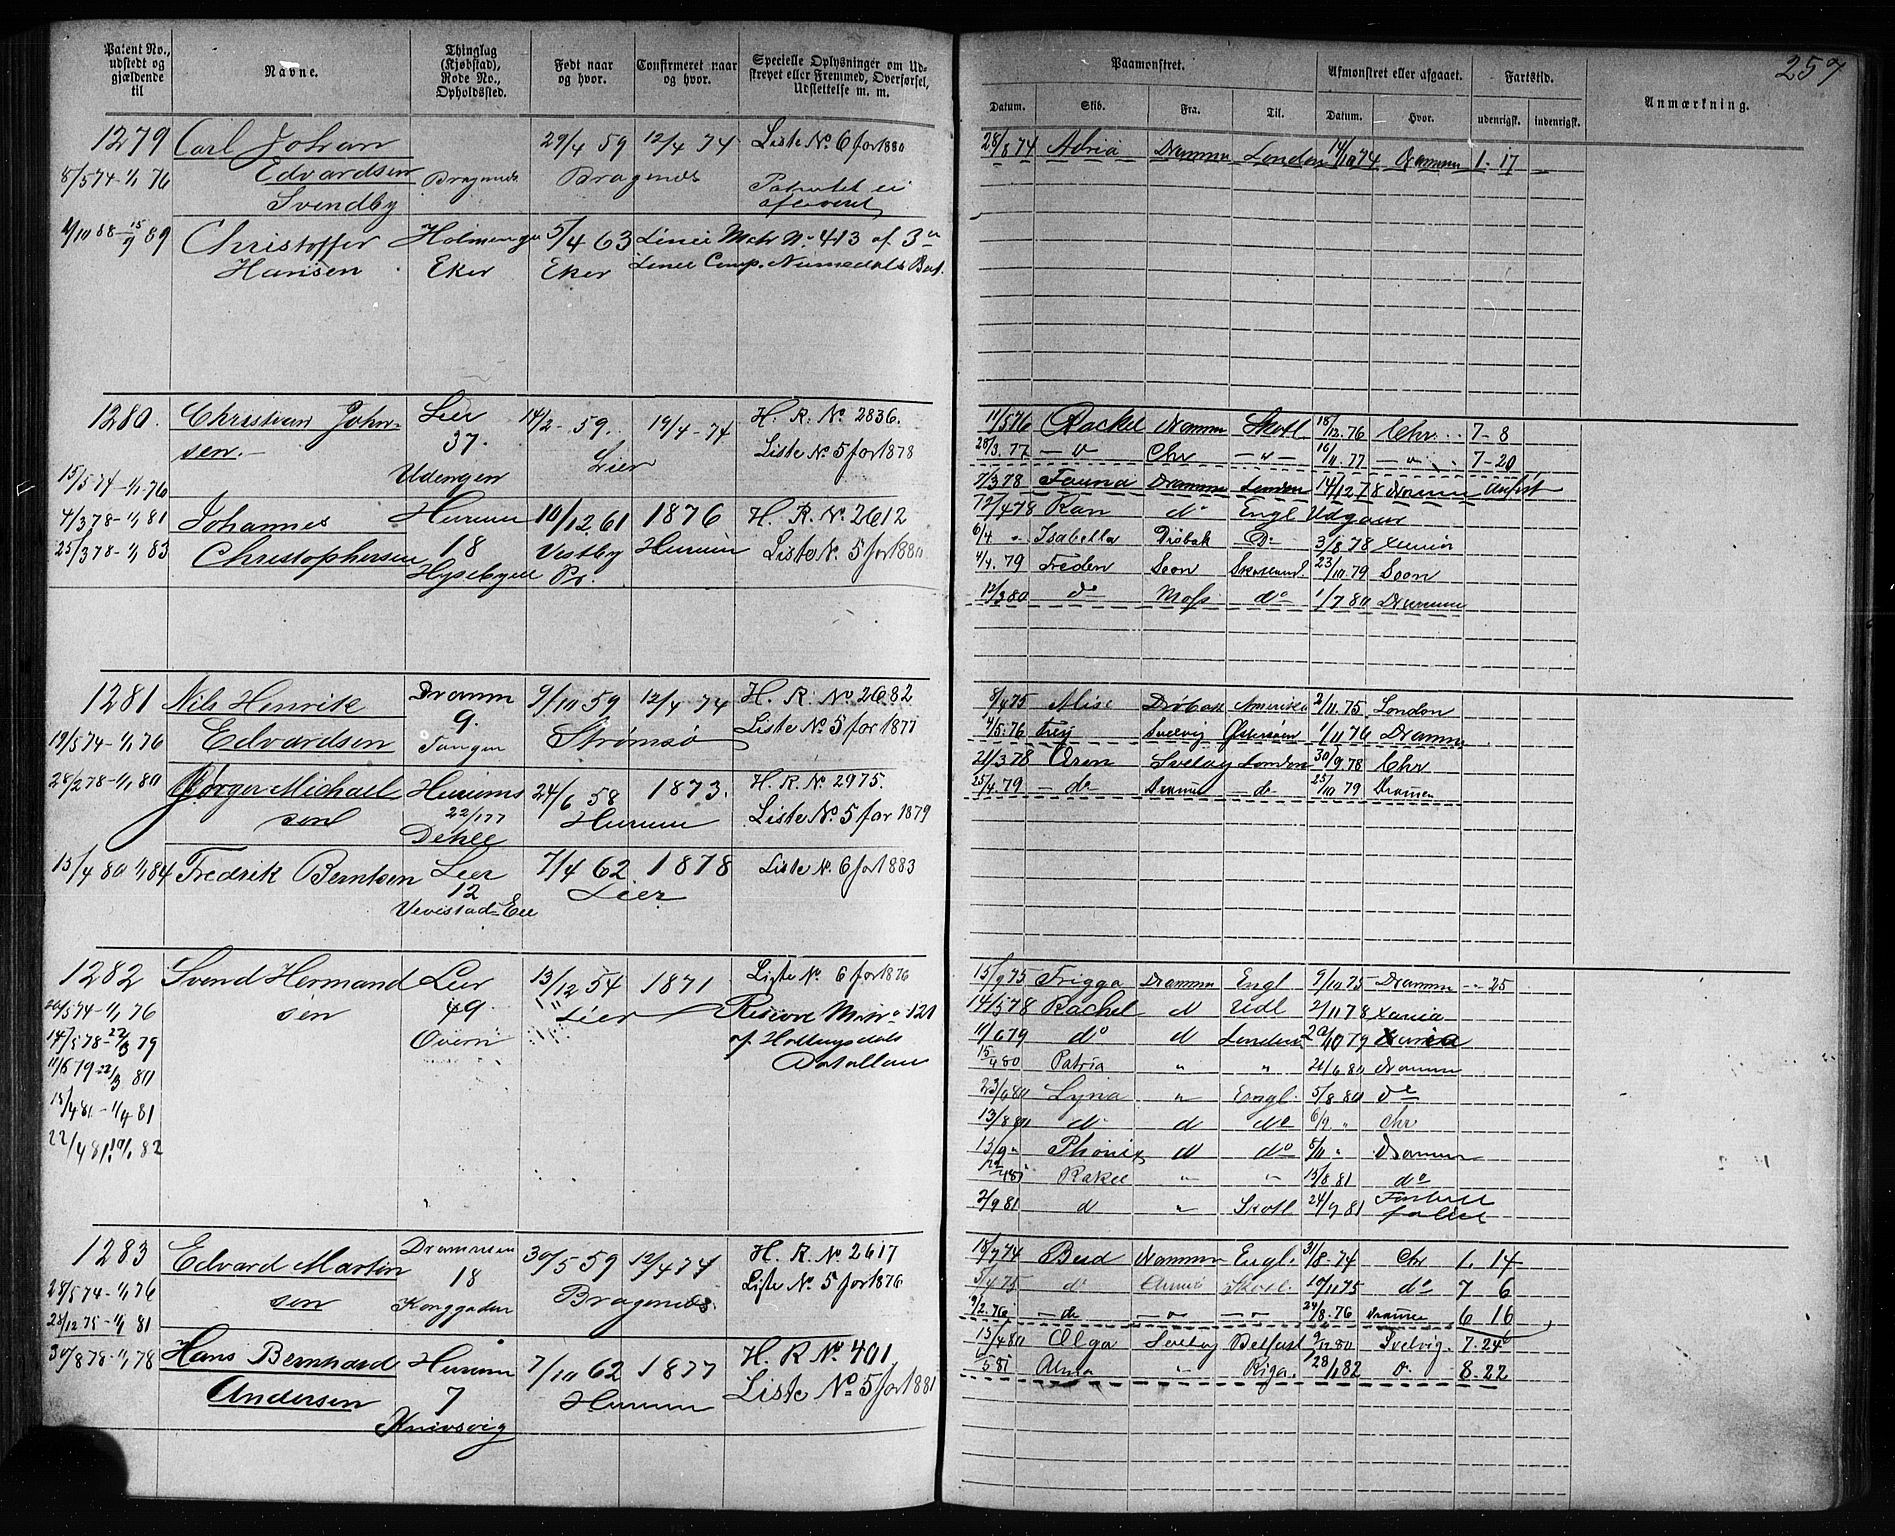 Patent No., udstedt og gjældende til
Navne.
Thinglag (Kjøbstad), Rode No., Opholdssted.
Født naar og hvor.
Confirmeret naar og hvor.
Specielle Oplysninger om Udstrepet eller Fremmed, Overførsel, Udslettelse m. m.
1279 Carl Johan 29/4 59 12/4 74 Liste No 6 for 1880
8/5 74-1/1 76 Edvardsen Bragernes Bragernes Patentet ei
Svendby afleveret
11/10 88-15/9 89 Christoffer 5/4 63 Linie Mtr No 413 af 3die
Hansen Eker Eker Linie Comp. Numedals Bat.
1280. Christian John- Lier 14/2-59. 19/4-74 H. R. No 2836.
sen.- 37. Lier Liste No 5 for 1878
15/5 74-1/1 76 Udengen
4/3 78-1/1 81 Johannes Hurum 10/12 61 1876 H. R. No 2612
25/3 78-1/1 83 Christophersen 18 Vestby Hurum Liste No 5 for 1880
Pr.
1281 Nils Henrik Dramm 9/10 59 12/4 74 H. R. No 2682
9. Liste No 5 for 1877
19/5 74-1/1 76 Edvardsen Tangen Strømsø
28/2 78-1/1 80 Jørgen Michael- Hurums 24/6 58 1873. H. R. No 2975.
sen 22/177 Hurum Liste No 5 for 1879
15/4 80-1/1 84 Fredrik Berntsen Lier 7/4 62 1878 Liste No 6 for 1883
12 Lier
1282 Svend Hermand- Lier 13/12 54 1871 Liste No 6 for 1876
20/5 74-1/1 76 sen 49 Lier Reserve Mtr No 121
14/5 78-22/3 79 Overn af Hallingdals
11/6 79-22/3 80 Batallion
1283 Edvard Martin- Drammen 30/5 59 12/4 74 H. R. No 2617
28/5 74-1/1 76 sen 18 Bragernes Liste No 5 for 1876
28/12 75-1/1 81 Konggaden
30/8 78-1/1 78 Hans Bernhard Hurum 7/10 62 1877 H. R. No 401
Andersen 7 Hurum Liste No 5 for 1881
Knivsvig
257
Paamønstret.
Afmønstret eller afgaaet.
Fartstid.
Anmærkning.
Datum. Skib. Fra. Til. Datum. Hvor. udenrigsk. indenrigsk.
28/8 74 Adria Drammen London 14/10 74 Drammen 1-17
11/5 76 Rachel Drammen Skotl 18/12.76 Chr. 7-8
28/3.77 -"- Chr -"- 16/11.77 -"- 7-20
7/3 78 Fauna Drammen London 14/12 78 Drammen
12/4 78 Ran do Engl Udgaar
6/4 " Isabella Drøbak Do 3/8 78 Xania
4/4.79 Freden Soon Skotland. 23/10.79 Soon
12/3 80 do Moss do 1/7 80 Drammen
8/4 75 Alise Drøbak Amerika 2/11.75 London
4/5.76 Frej Svelvig Østersøen 1/11 76 Dramm
21/3 78 Svelvig London 30/9.78 Chr
25/4.79 -do- Drammen -do- 25/10 79 Drammen
15/9 75 Frigga Drammen Engl 9/10 75 Drammen "-25
14/5 78 Rachel do Udl 2/11 78 Xania
11/6 79 do do London 20/10 79 Xania
15/4 80 Patria " " 26/6 80 Drammen
23/6 80 Lyna " Engl. 5/8 80 do
13/8 80 do do do 6/9 " Chr
13/9 " Phønix do do 5/11 " Drammen
22/4 81 Rakel " " 15/8 81 do
2/9 81 do " Skotl 24/9 81
18/7 74 Bud Drammen Engl. 31/8-74 Chr 1. 14
5/4 75 do Skotl. 10/11 75 do 7 6
9/2.76 -do- -"- -"- 24/8.76 Drammen 6 16
15/4 80 Olga Svelvig Belfast Svelvig. 7-24
6/5 81 Alma " Riga. 28/1 82 do 8-22